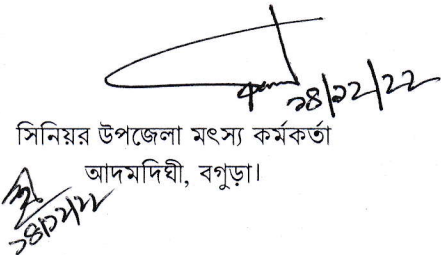 ২৪/১২/২২
সিনিয়র উপজেলা মৎস্য কর্মকর্তা
আদমদিঘী, বগুড়া।
২৪/১২/২২